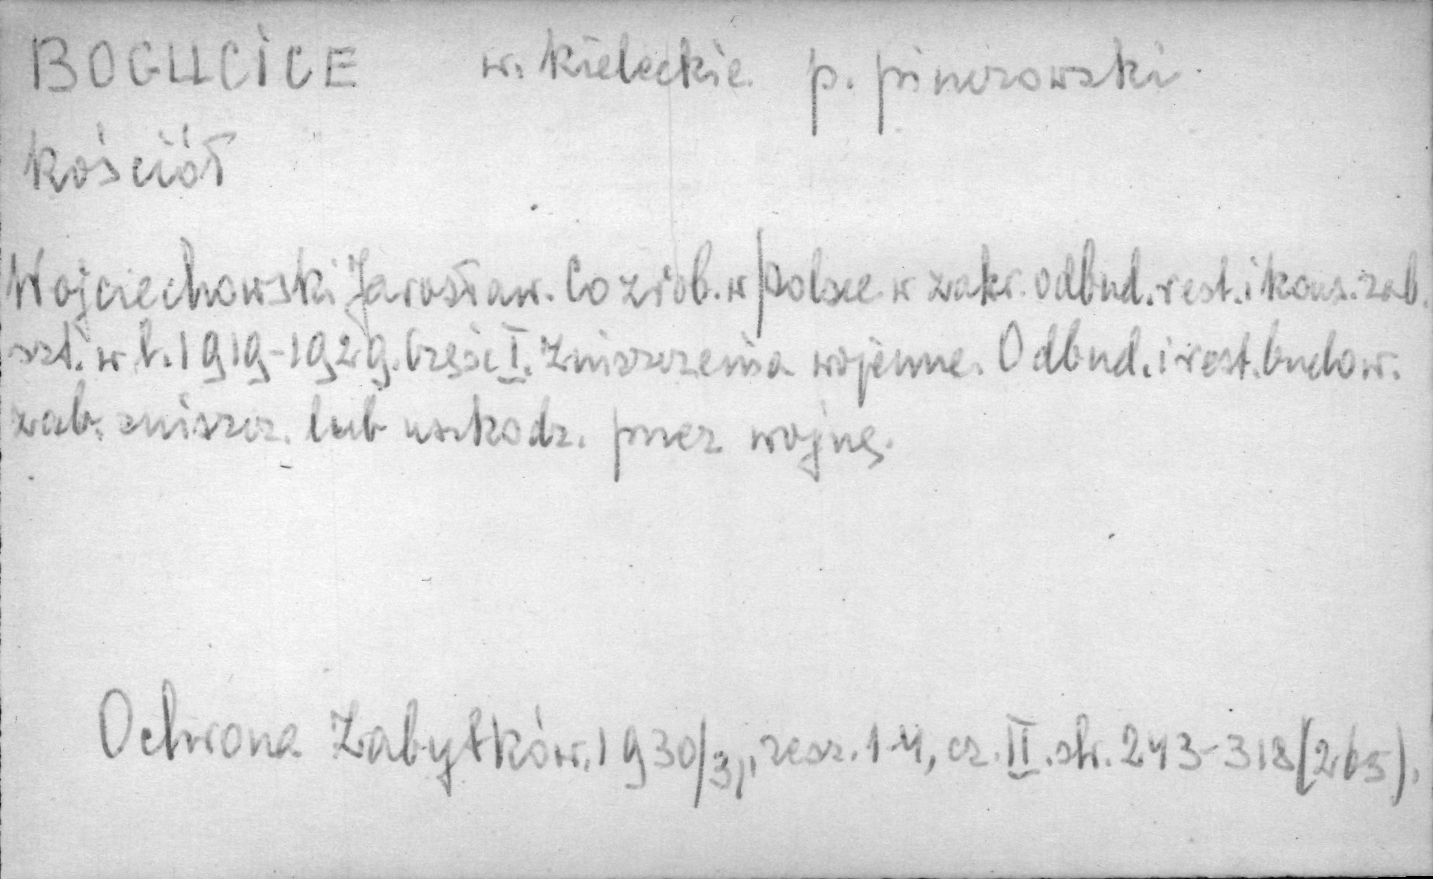 BOGUCICE w. kieleckie p. pińczowski
kościół
Wojciechowski Jarosław. Co zrob. w Polsce w zakr. odbud. rest. i kons. zab.
szt. w l. 1919-1929. Część I. Zniszczenia wojenne. Odbud. i rest. budow.
zab. zniszcz. lub uszkodz. przez wojnę.
Ochrona Zabytków. 1930/31, zesz. 1-4, cz. II. str. 243-318 (265).